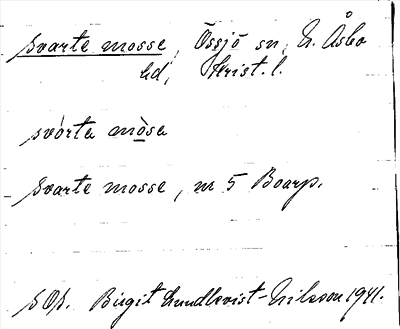 svarte mosse, Össjö sn, N. Åsbo
hd, Krist. l.
svòrta mòsa
Svarte mosse, m 5 Boarp.
Birgit Lundkvist-Nilsson 1941.